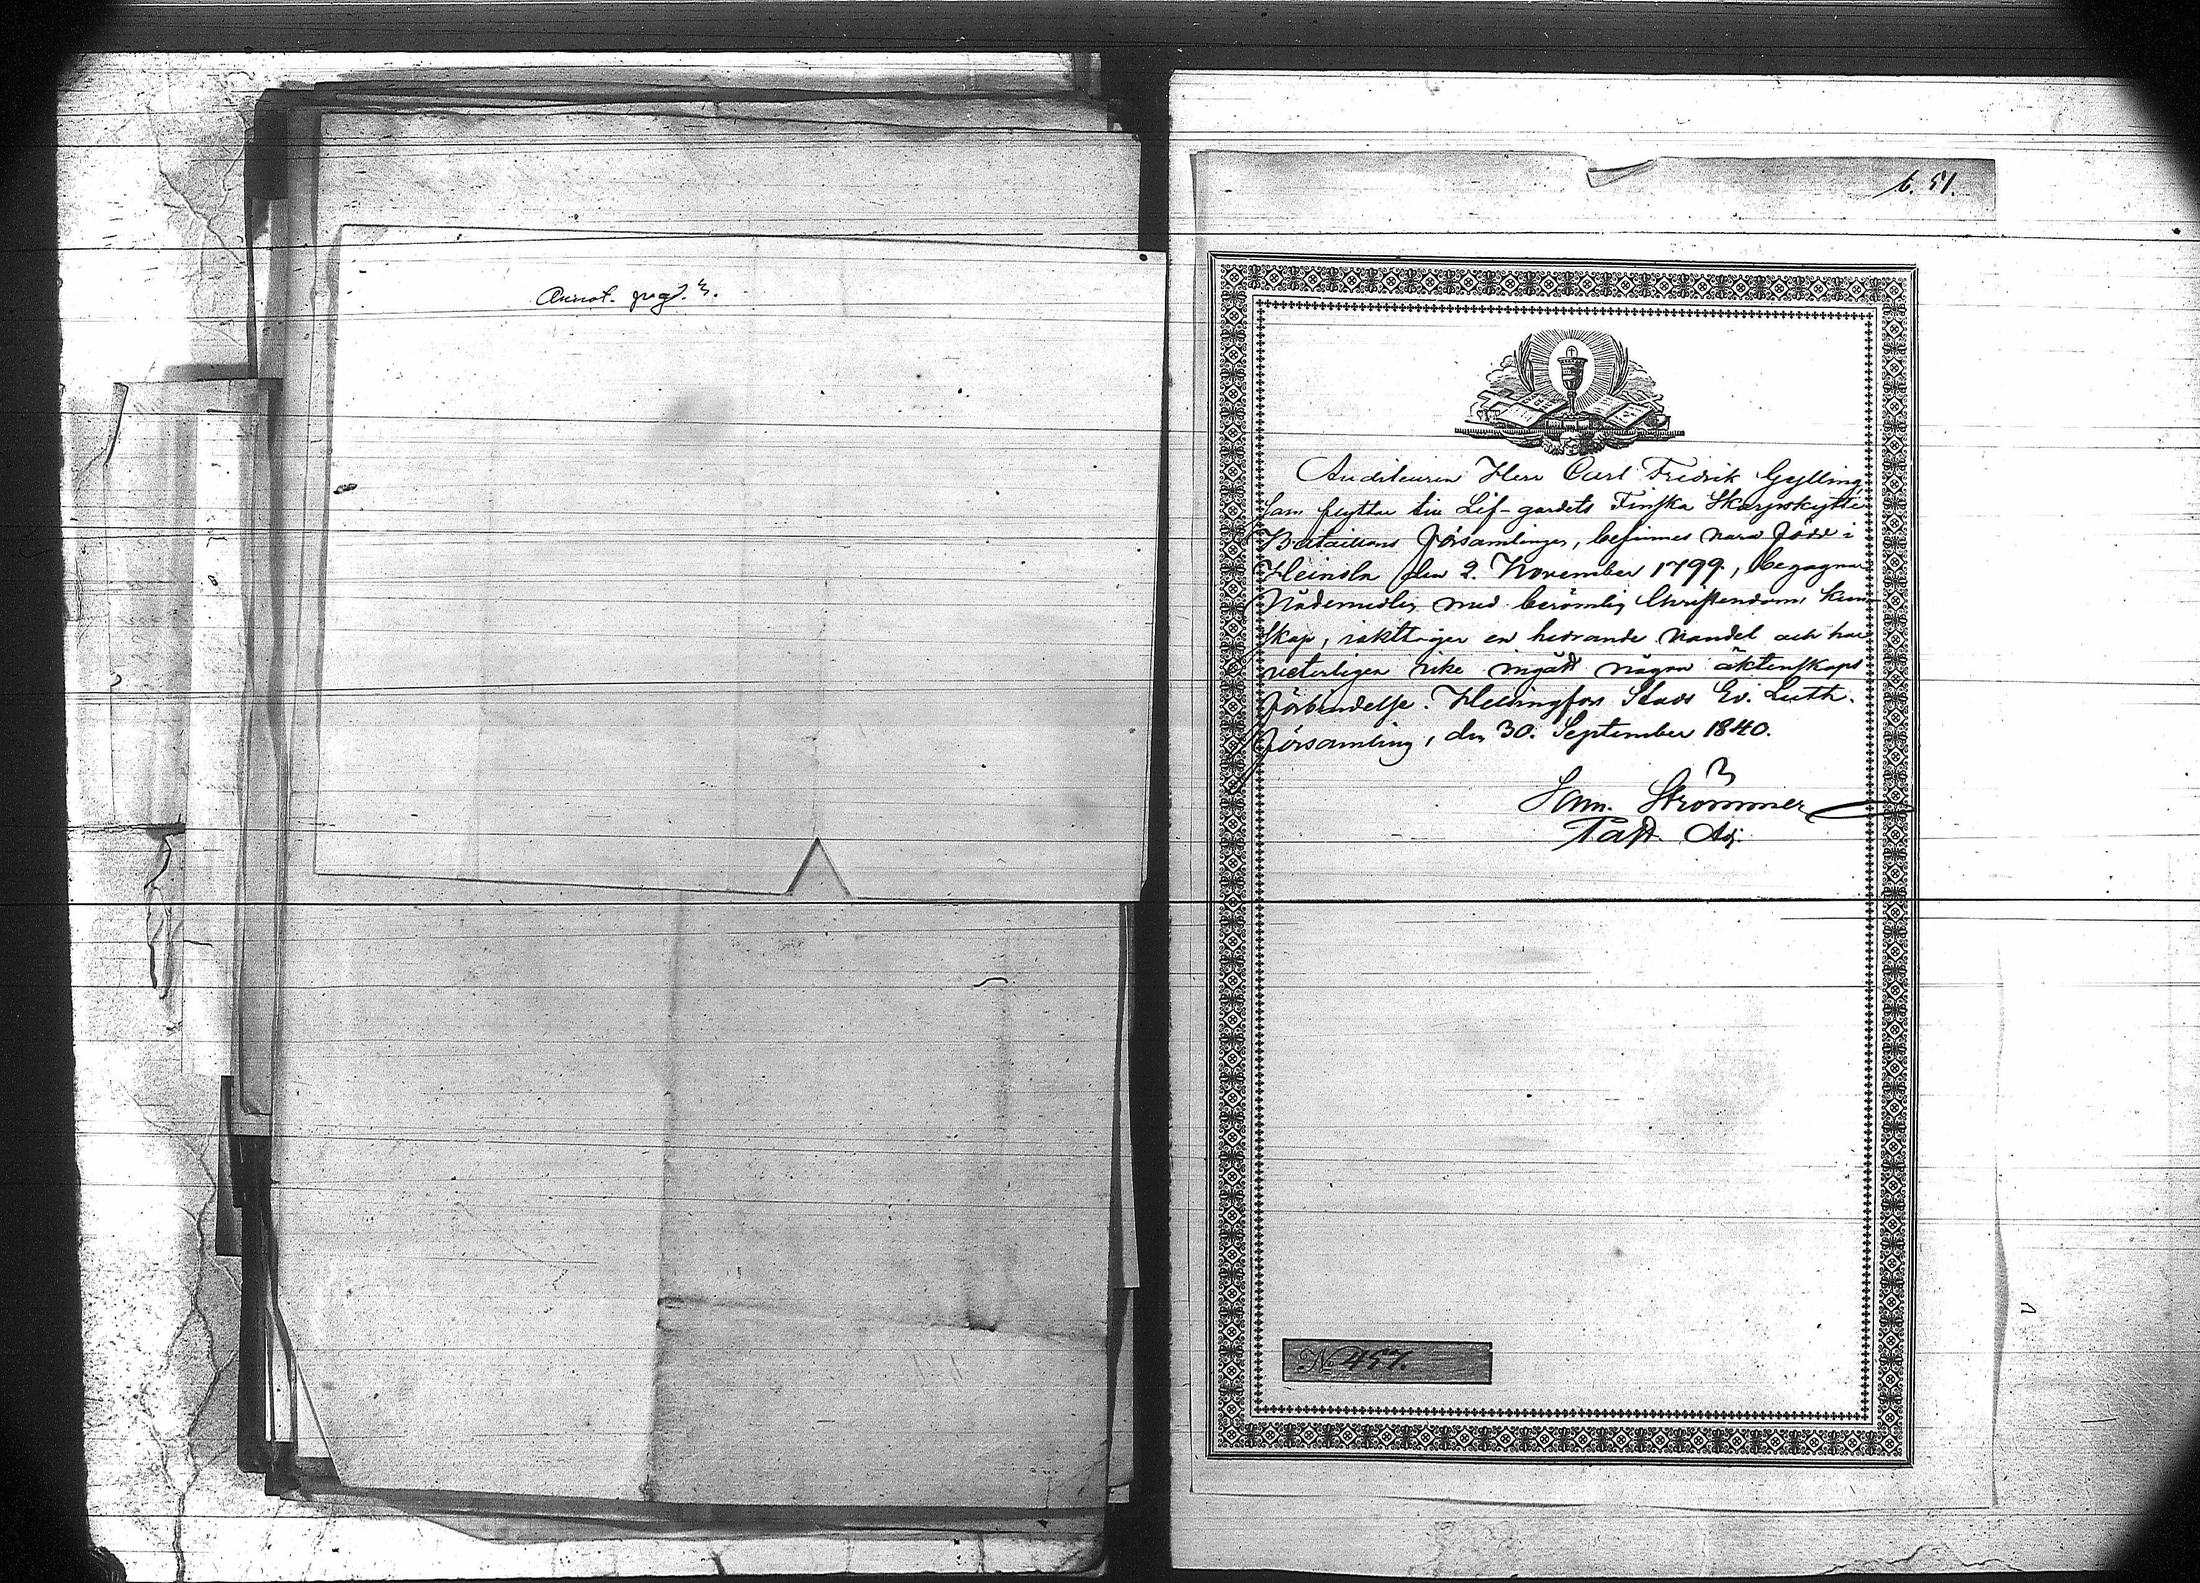 Annot. pag. 3.
b. 51.
Auditeuren Herr Carl Fredrik Gylling,
som flyttar till Lif-gardets Finska Skarpskytte
Bataillons församlingen, befinnes vara född i
Heinola den 2. November 1799, begagnar
Nådemedlen med berömlig Christendoms kun-
skap, iakttager en hedrande vandel och har
veterligen icke ingått någon äktenskaps
förbindelse. Helsingfors Stads Ev. Luth.
församling, den 30. September 1840.
Sam. Strömmer
Past. Adj.
No 457.